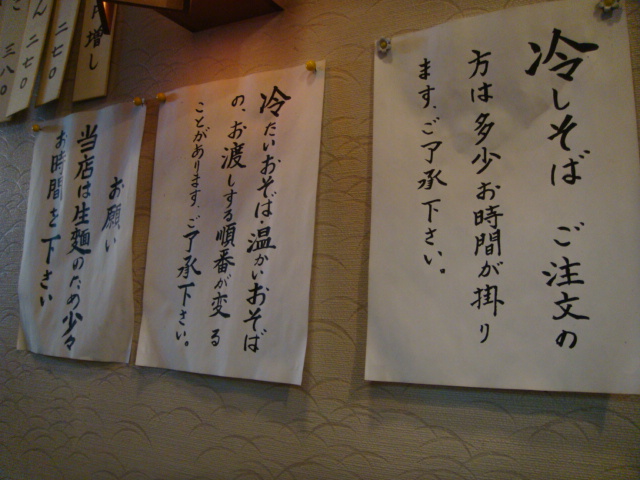 冷しそば ご注文の
方は多少お時間が掛り
ます、ご了承下さい。
冷たいおそば・温かいおそば
の、お渡しする順番が変る
ことがあります、ご了承下さい。
お願い
当店は生麺のため少々
お時間を下さい
増し
ん 二七〇
二七〇
三八〇